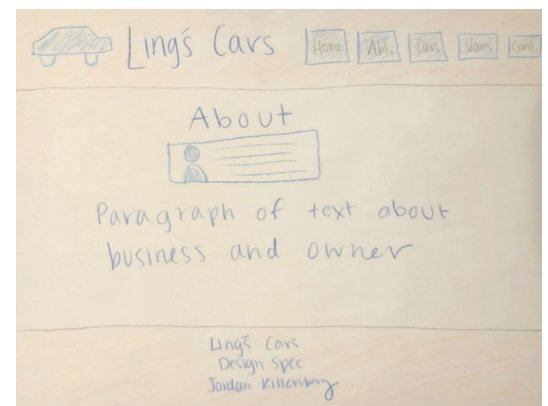 Ling's Cars
Home
Abt.
Cars
Vans
Cont.
About
Paragraph of text about
business and owner
Ling's Cars
Design Spec
Jordan Killenberg